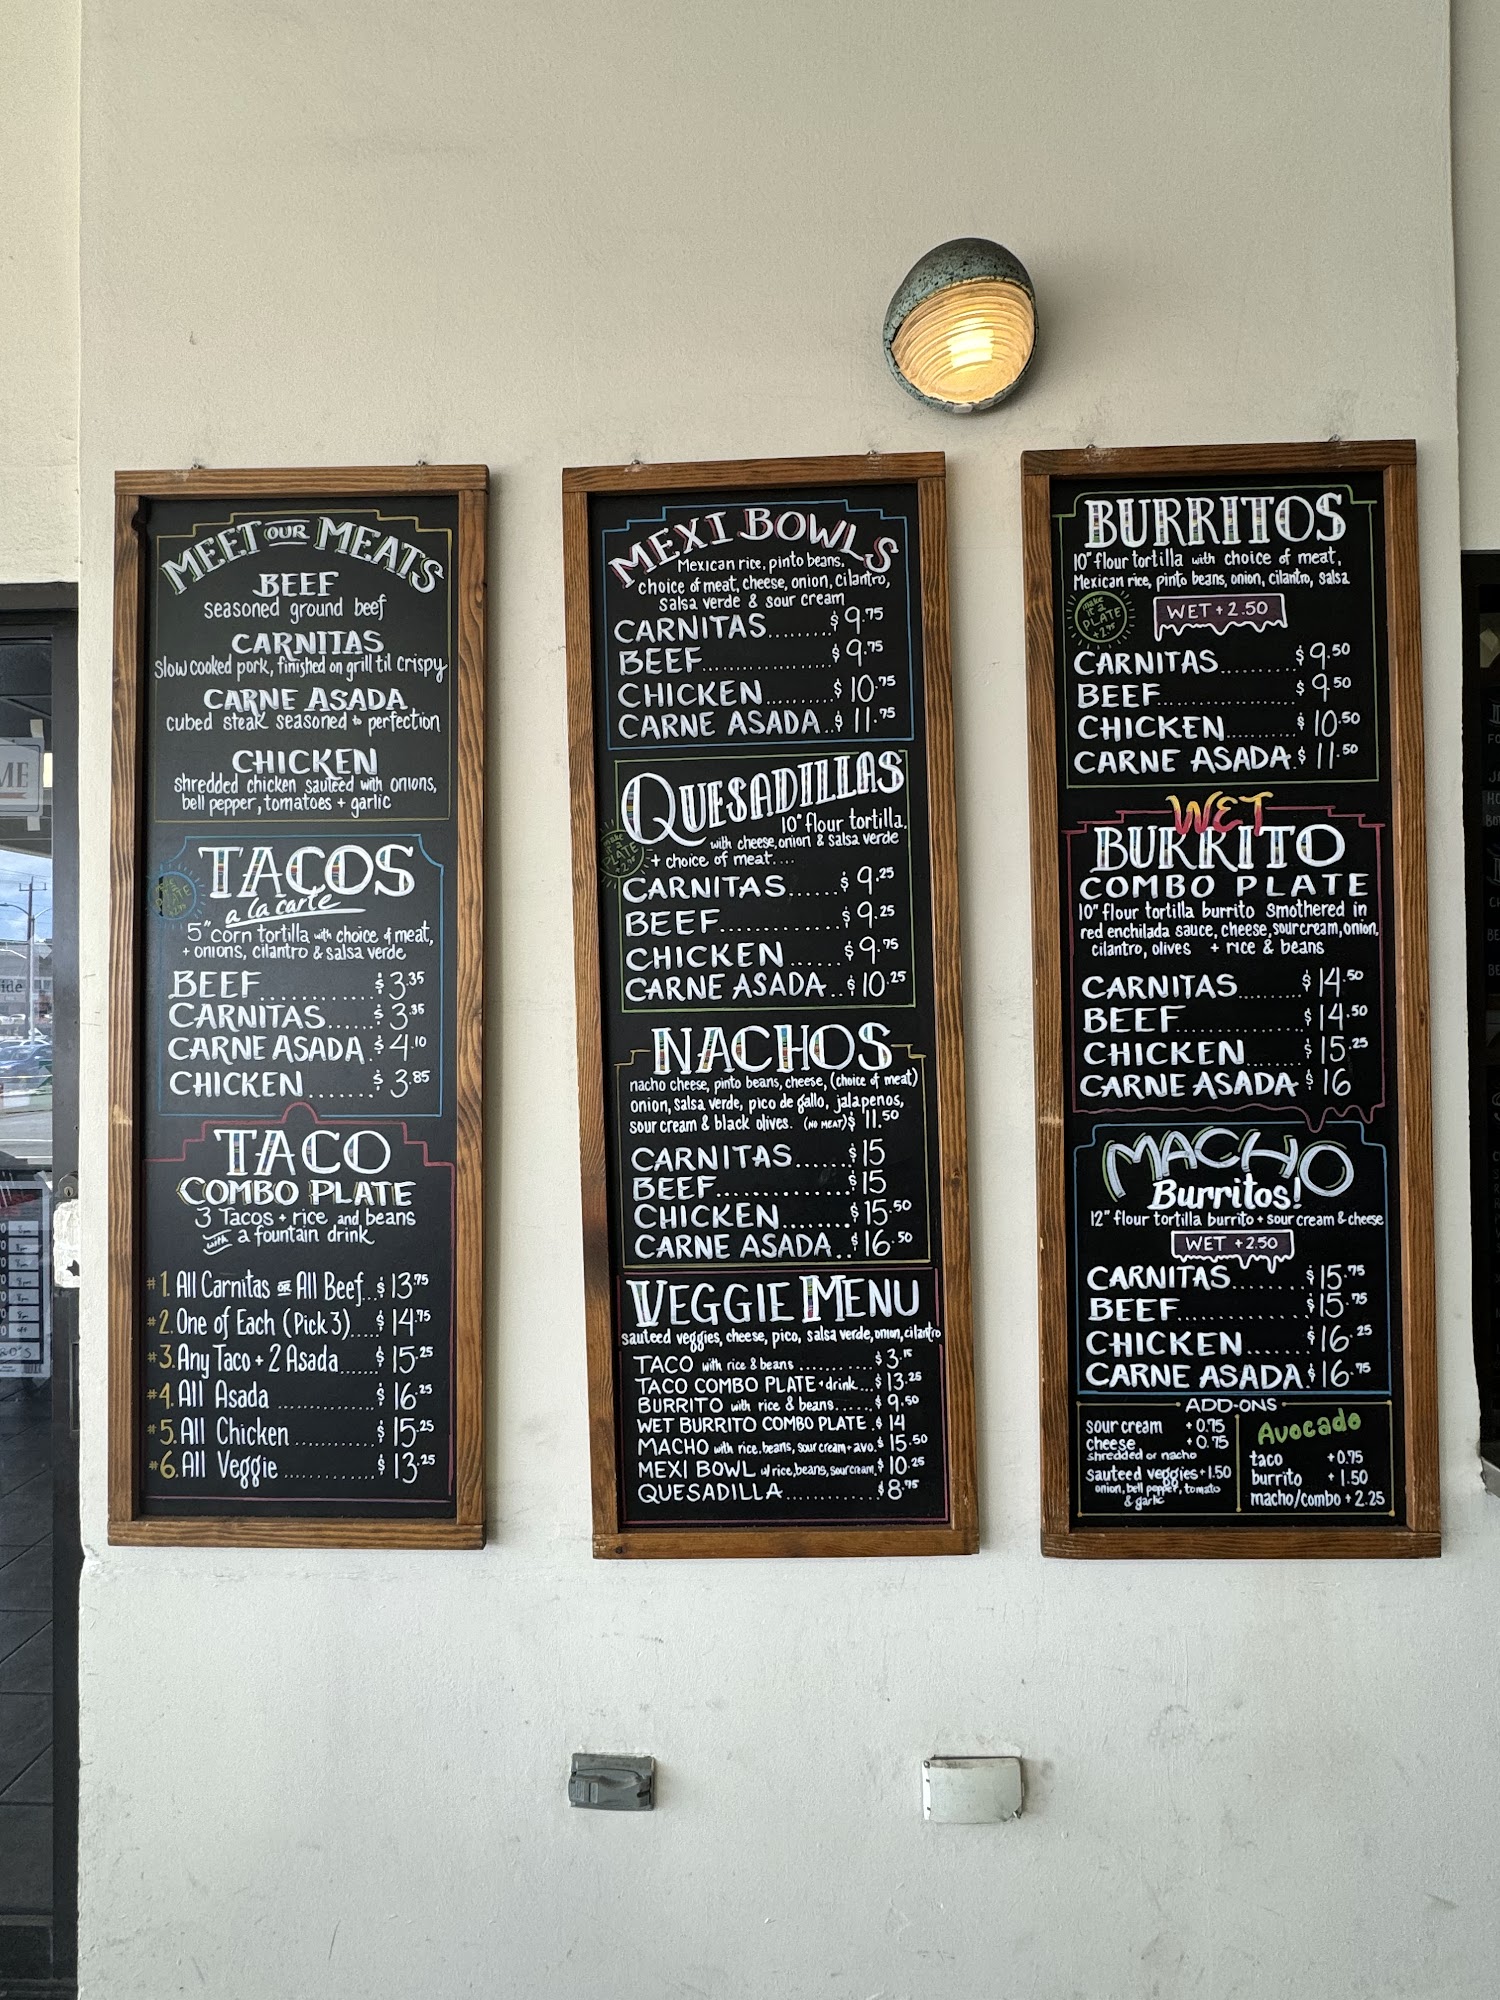 MEET OUR MEATS
BEEF
seasoned ground beef
CARNITAS
slow cooked pork, finished on grill til crispy
CARNE ASADA
cubed steak seasoned to perfection
CHICKEN
shredded chicken sautéed with onions,
bell pepper, tomatoes + garlic
TACOS
a la carte
make it a PLATE +2.95
5" corn tortilla with choice of meat,
+ onions, cilantro & salsa verde
BEEF............$3.35
CARNITAS......$3.35
CARNE ASADA.$4.10
CHICKEN.......$3.85
TACO
COMBO PLATE
3 Tacos + rice and beans
with a fountain drink
#1. All Carnitas or All Beef..$13.75
#2. One of Each (Pick 3)....$14.75
#3. Any Taco + 2 Asada......$15.25
#4. All Asada.............$16.25
#5. All Chicken...........$15.25
#6. All Veggie............$13.25
MEXI BOWLS
Mexican rice, pinto beans,
choice of meat, cheese, onion, cilantro,
salsa verde & sour cream
CARNITAS........$9.75
BEEF...............$9.75
CHICKEN.........$10.75
CARNE ASADA..$11.75
QUESADILLAS
10" flour tortilla,
with cheese, onion & salsa verde
make it a PLATE +2.95
+ choice of meat....
CARNITAS......$9.25
BEEF............$9.25
CHICKEN.......$9.75
CARNE ASADA..$10.25
NACHOS
nacho cheese, pinto beans, cheese, (choice of meat)
onion, salsa verde, pico de gallo, jalapenos,
sour cream & black olives. (NO MEAT) $11.50
CARNITAS......$15
BEEF.............$15
CHICKEN........$15.50
CARNE ASADA..$16.50
VEGGIE MENU
sautéed veggies, cheese, pico, salsa verde, onion, cilantro
TACO with rice & beans...........$3.15
TACO COMBO PLATE + drink...$13.25
BURRITO with rice & beans......$9.50
WET BURRITO COMBO PLATE.$14
MACHO with rice, beans, sour cream + avo.$15.50
MEXI BOWL w/ rice, beans, sour cream.$10.25
QUESADILLA...........$8.75
BURRITOS
10" flour tortilla with choice of meat,
Mexican rice, pinto beans, onion, cilantro, salsa
make it a PLATE +2.95
WET +2.50
CARNITAS..........$9.50
BEEF...............$9.50
CHICKEN.........$10.50
CARNE ASADA.$11.50
WET
BURRITO
COMBO PLATE
10" flour tortilla burrito smothered in
red enchilada sauce, cheese, sour cream, onion,
cilantro, olives + rice & beans
CARNITAS........$14.50
BEEF..............$14.50
CHICKEN.......$15.25
CARNE ASADA $16
MACHO
Burritos!
12" flour tortilla burrito + sour cream & cheese
WET +2.50
CARNITAS.......$15.75
BEEF.............$15.75
CHICKEN......$16.25
CARNE ASADA.$16.75
ADD-ONS
sour cream +0.75
cheese +0.75
shredded or nacho
sautéed veggies +1.50
onion, bell pepper, tomato
& garlic
Avocado
taco +0.75
burrito +1.50
macho/combo +2.25